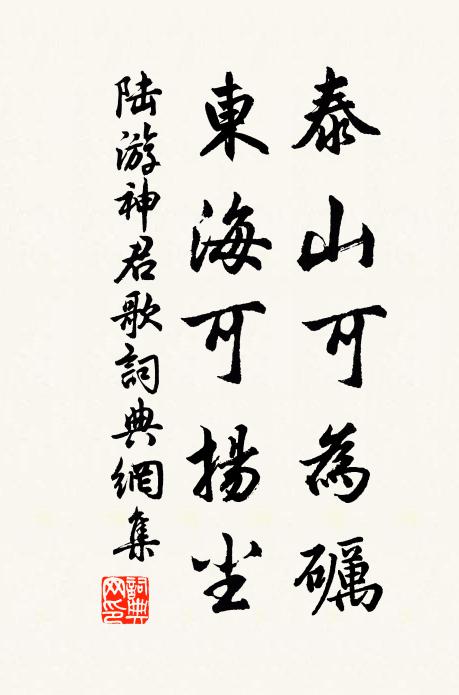 泰山可為礪
東海可揚尘
陸游神君歌詞典網集
詞典网印